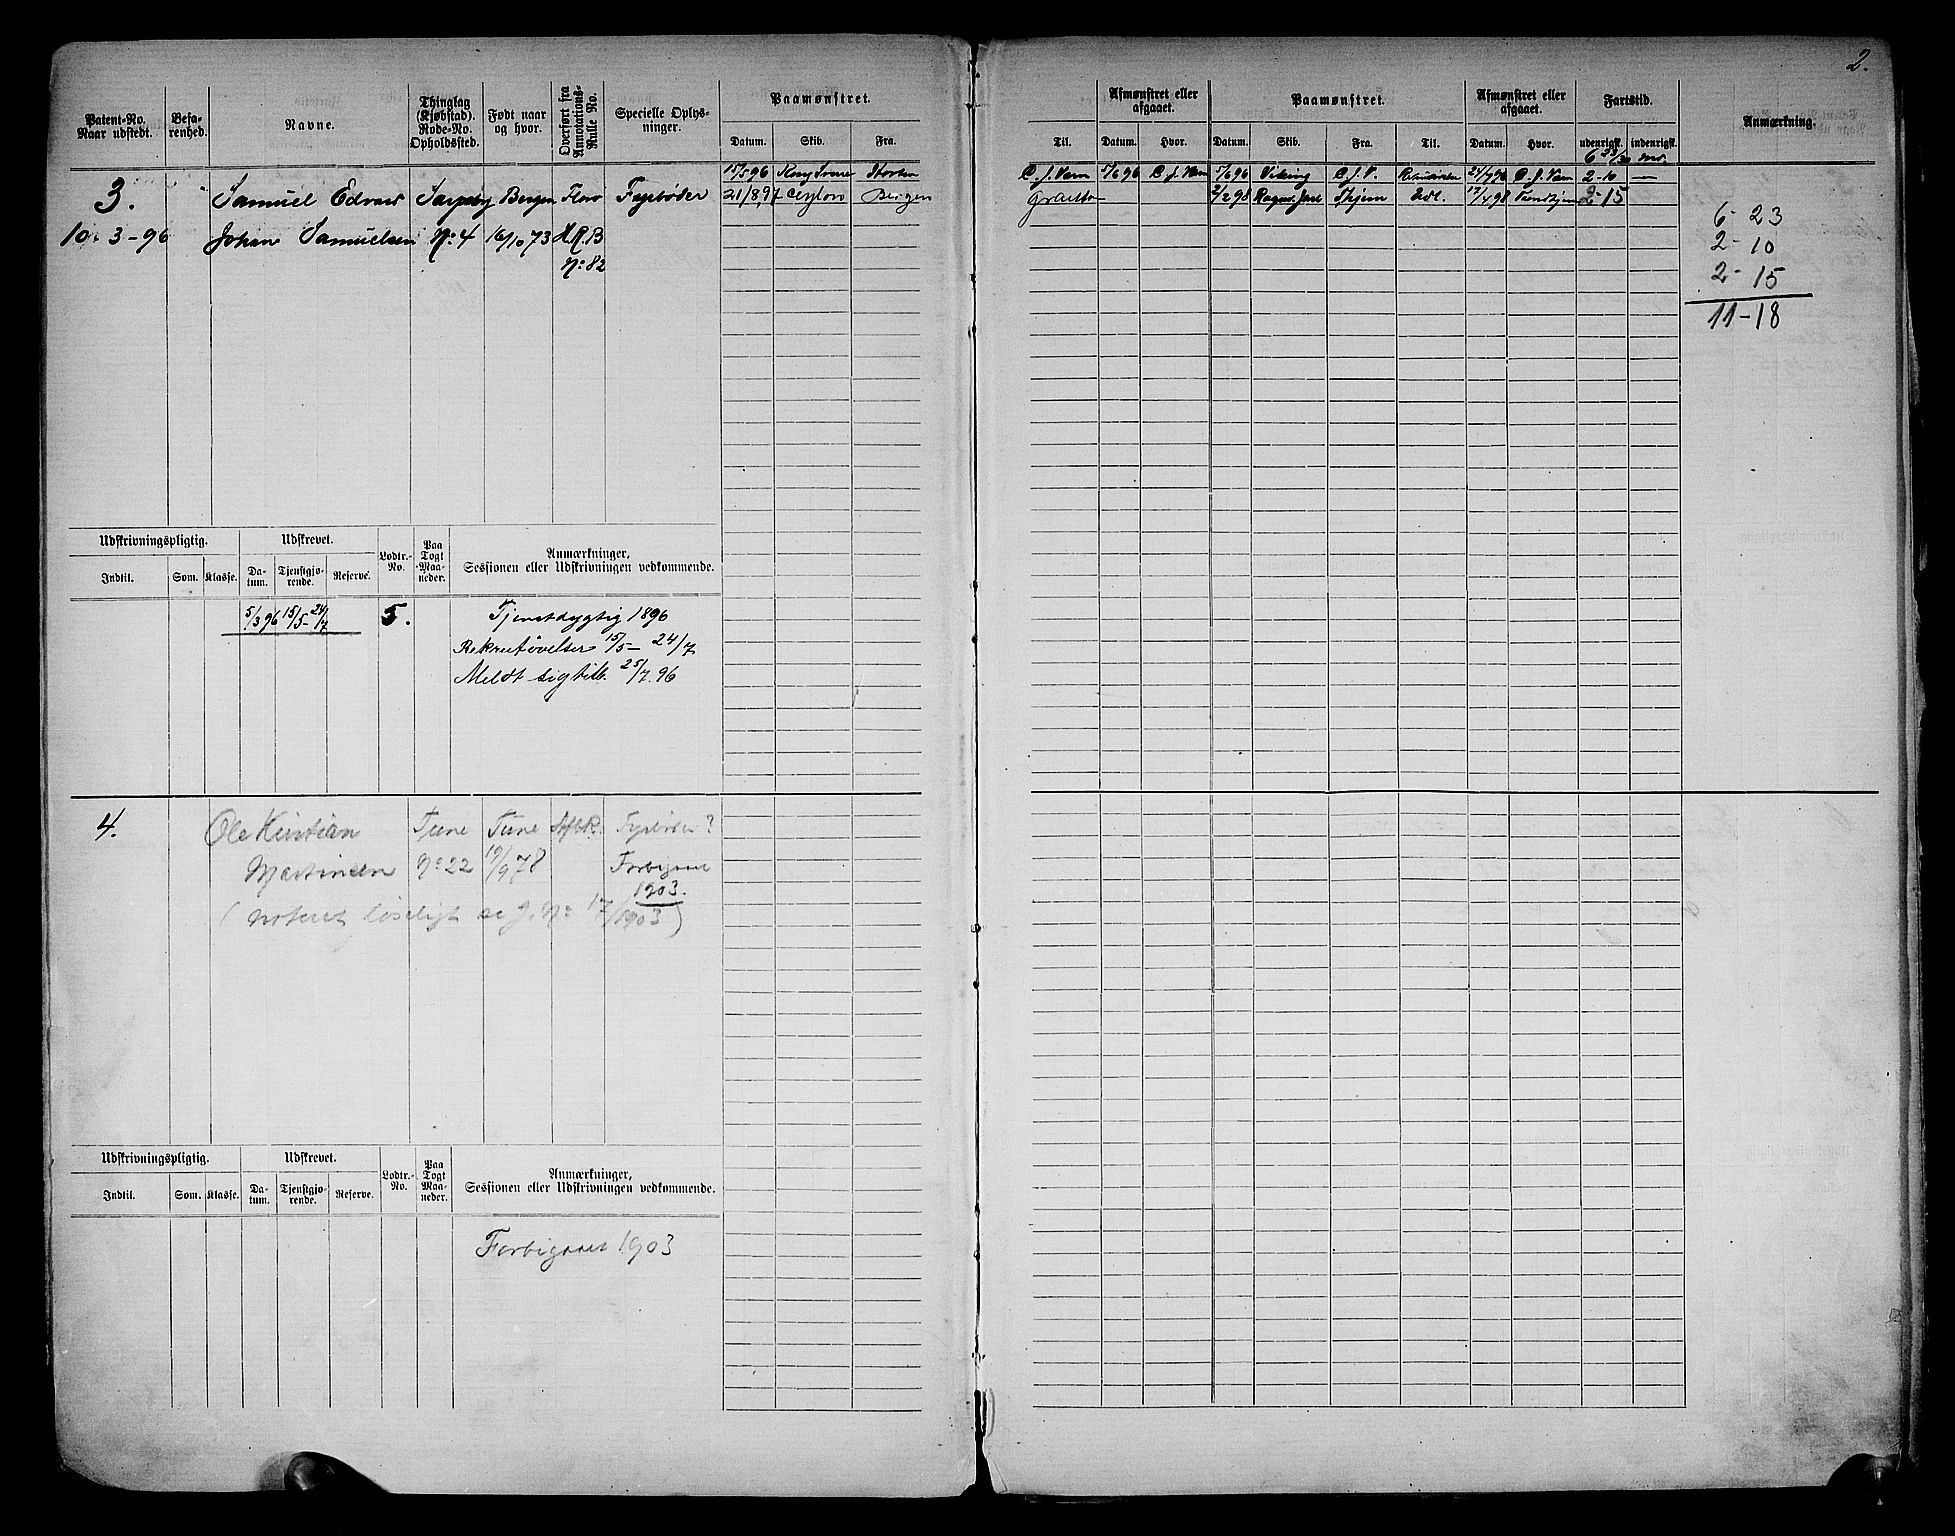 2.
Patent-No. Naar udstedt.
Befarenhed.
Navne.
Thinglag (Kjøbstad). Rode-No. Opholdssted.
Født naar og hvor.
Overført fra Annotations-Rulle No.
Specielle Oplysninger.
Paamønstret.
Datum. Skib. Fra. Til.
Afmønstret eller afgaaet.
Datum. Hvor.
Paamønstret.
Datum. Skib. Fra. Til.
Afmønstret eller afgaaet.
Datum. Hvor.
Fartstid.
udenrigsk. indenrigsk.
Anmærkning.
6 23/30 md.
15/5 96 Horten C. J. Vern 1/6 96 C. J. Vern 1/6 96 Viking C. J. V. 24/7 96 C. J. Vern 2-10 —
3. Samuel Edvard Sarpsbg Bergen Fyrbøder 21/8 97 Ceylon Bergen 2/2 98 Ragnv. Jarl 17/4 98 Trondhjem 2-15
10-3-96 Johan Samuelsen No 4 16/10 73 A.R.B
No 82
6-23
2-10
2-15
11-18
Udskrivningspligtig. Udskrevet. Lodtr.-No. Paa Togt Maaneder. Anmærkninger, Sessionen eller Udskrivningen vedkommende.
Indtil. Som. Klasse. Datum. Tjenstgjørende. Reserve.
5/3 96 15/5-24/7 5. Tjenstdygtig 1896
Rekrutøvelser 15/5 - 24/7
Meldt sig till. 25/7.96
4. Ole Kristian Tune Tune Fyrbøder?
Martinsen No 22 19/9 78 Forbigaaet
1903.
(noteret løseligt se J. No 17/1903)
Udskrivningspligtig. Udskrevet. Lodtr.-No. Paa Togt Maaneder. Anmærkninger, Sessionen eller Udskrivningen vedkommende.
Indtil. Som. Klasse. Datum. Tjenstgjørende. Reserve.
Forbigaaet 1903